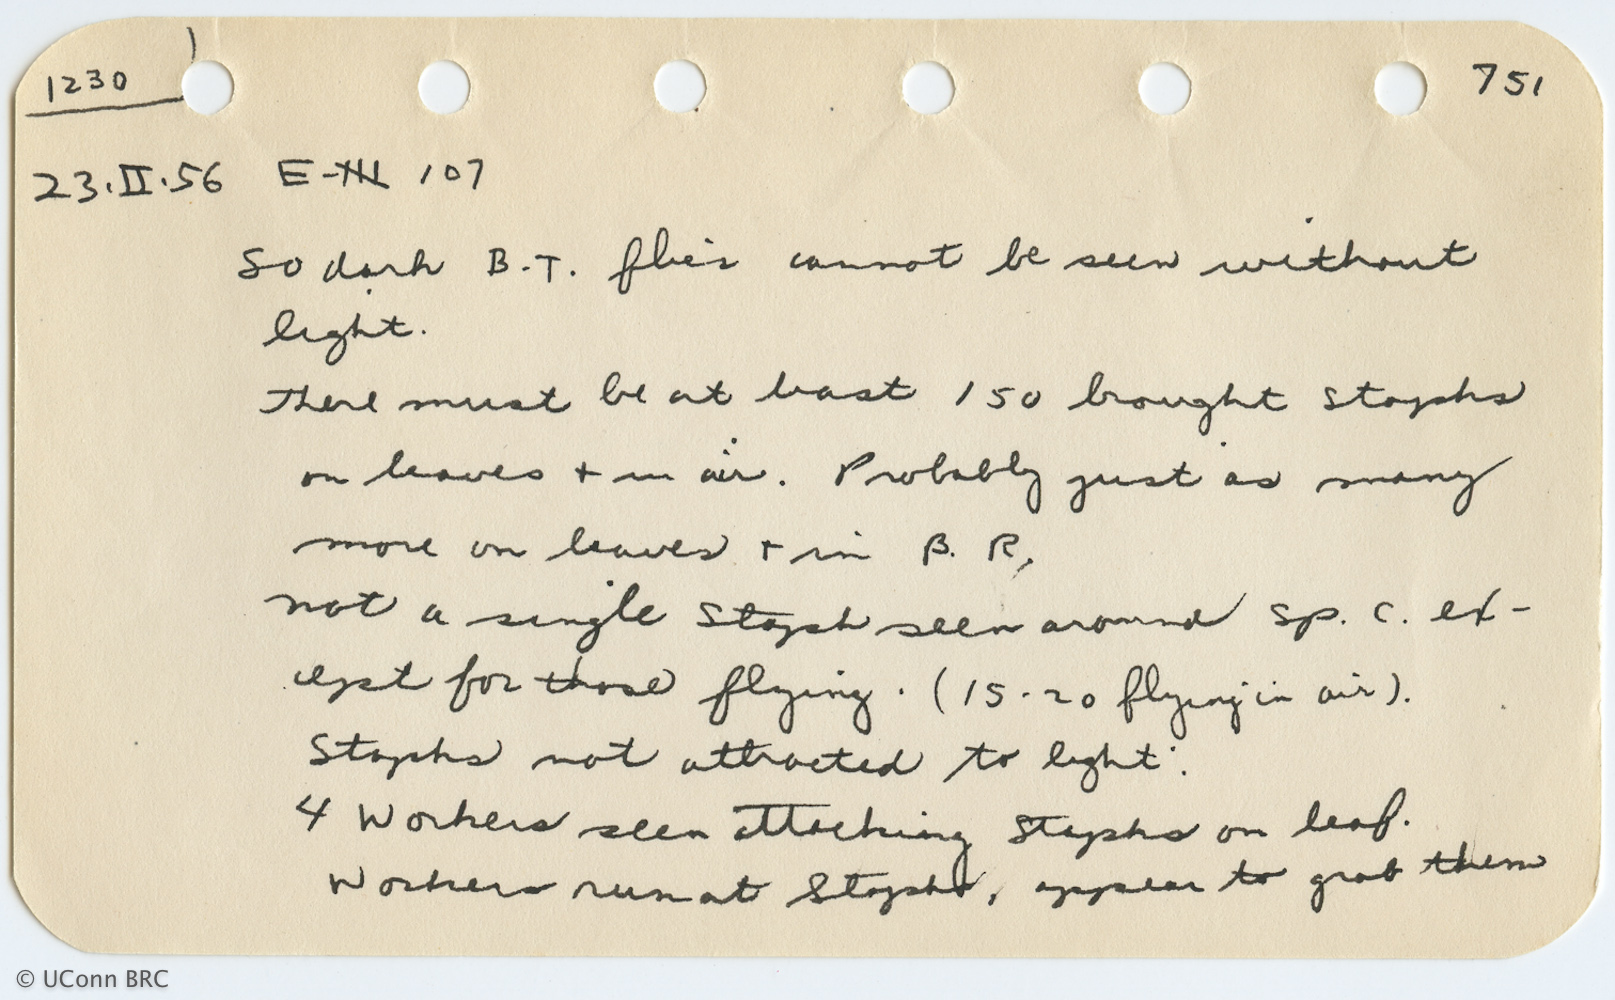 1230
751
23.II.56 E-III 107
So dark B.T. flies cannot be seen without
light.
There must be at least 150 brought Staphs
on leaves + in air. Probably just as many
more on leaves + in B. R,
not a single Staph seen around Sp. C. ex-
cept for those flying. (15-20 flying in air).
Staphs not attracted to light.
4 Workers seen attacking Staphs on leaf.
Workers run at Staphs, appear to grab them
© UConn BRC